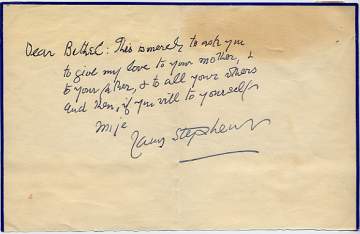 Dear Bethel: This is merely to ask you
to give my love to your mother, &
to your father, & to all your others
And then, if you will to yourself
mise
James Stephens